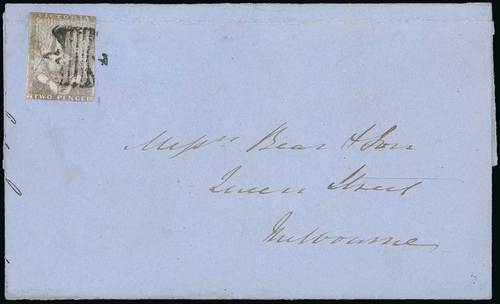 VICTORIA
TWO PENCE
Messrs Bear & Son
Queen Street
Melbourne